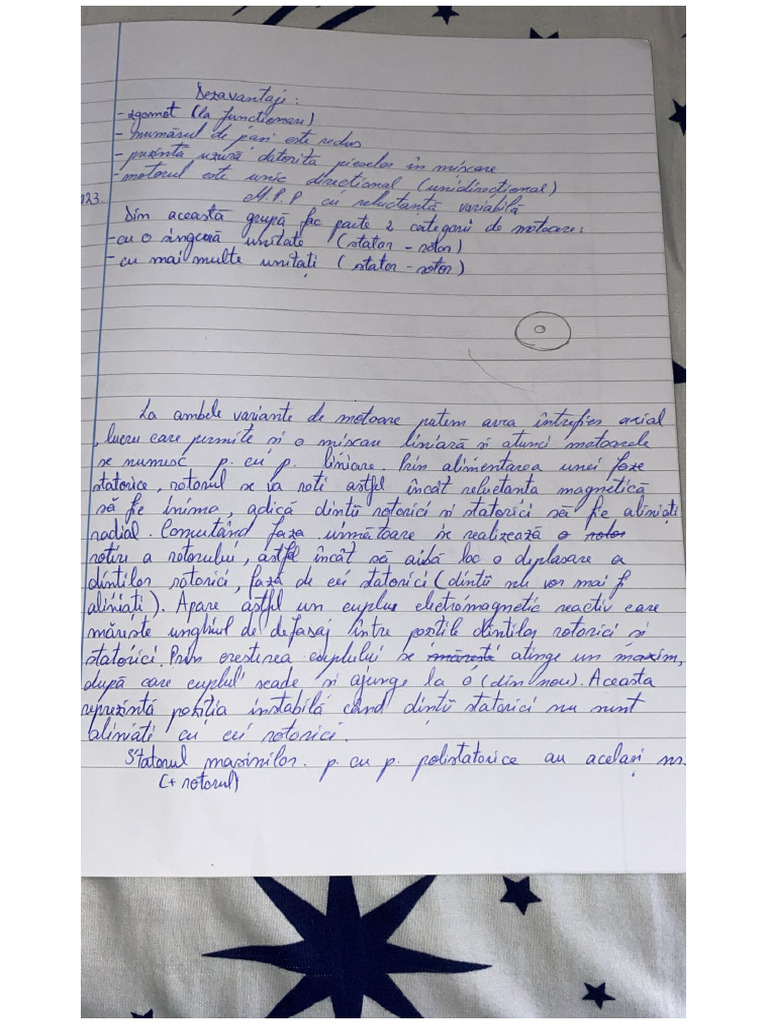 Dezavantaje:
- zgomot (la functionare)
- numărul de pași este redus
- prezintă uzură datorita pieselor în miscare
- motorul este unic directional (unidirecțional)
023. M.P.P cu reluctanță variabilă
Din această grupă fac parte 2 categorii de motoare:
- cu o singură unitate (stator - rotor)
- cu mai multe unitați (stator - rotor)
La ambele variante de motoare putem avea întrefier axial
, lucru care permite si o miscare liniară si atunci motoarele
se numesc p. cu p. liniare. Prin alimentarea unei faze
statorice, rotorul se va roti astfel încât reluctanta magnetică
să fie inima, adică dintii rotorici si statorici să fie aliniați
radial. Comutând faza următoare se realizează o rotor
rotire a rotorului, astfel încât să aibă loc o deplasare a
dintilor rotorici, fază de cei statorici (dintii nu vor mai fi
aliniați). Apare astfel un cuplu electromagnetic reactiv care
mărește unghiul de defasaj între pozitiile dintilor rotorici si
statorici. Prin cresterea cuplului se mărește atinge un maxim,
după care cuplul scade si ajunge la 0 (din nou). Aceasta
reprezintă poziția instabilă când dintii statorici nu sunt
aliniati cu cei rotorici.
Statorul masinilor. p. cu p. polistatorice au acelasi nr.
(+ rotorul)